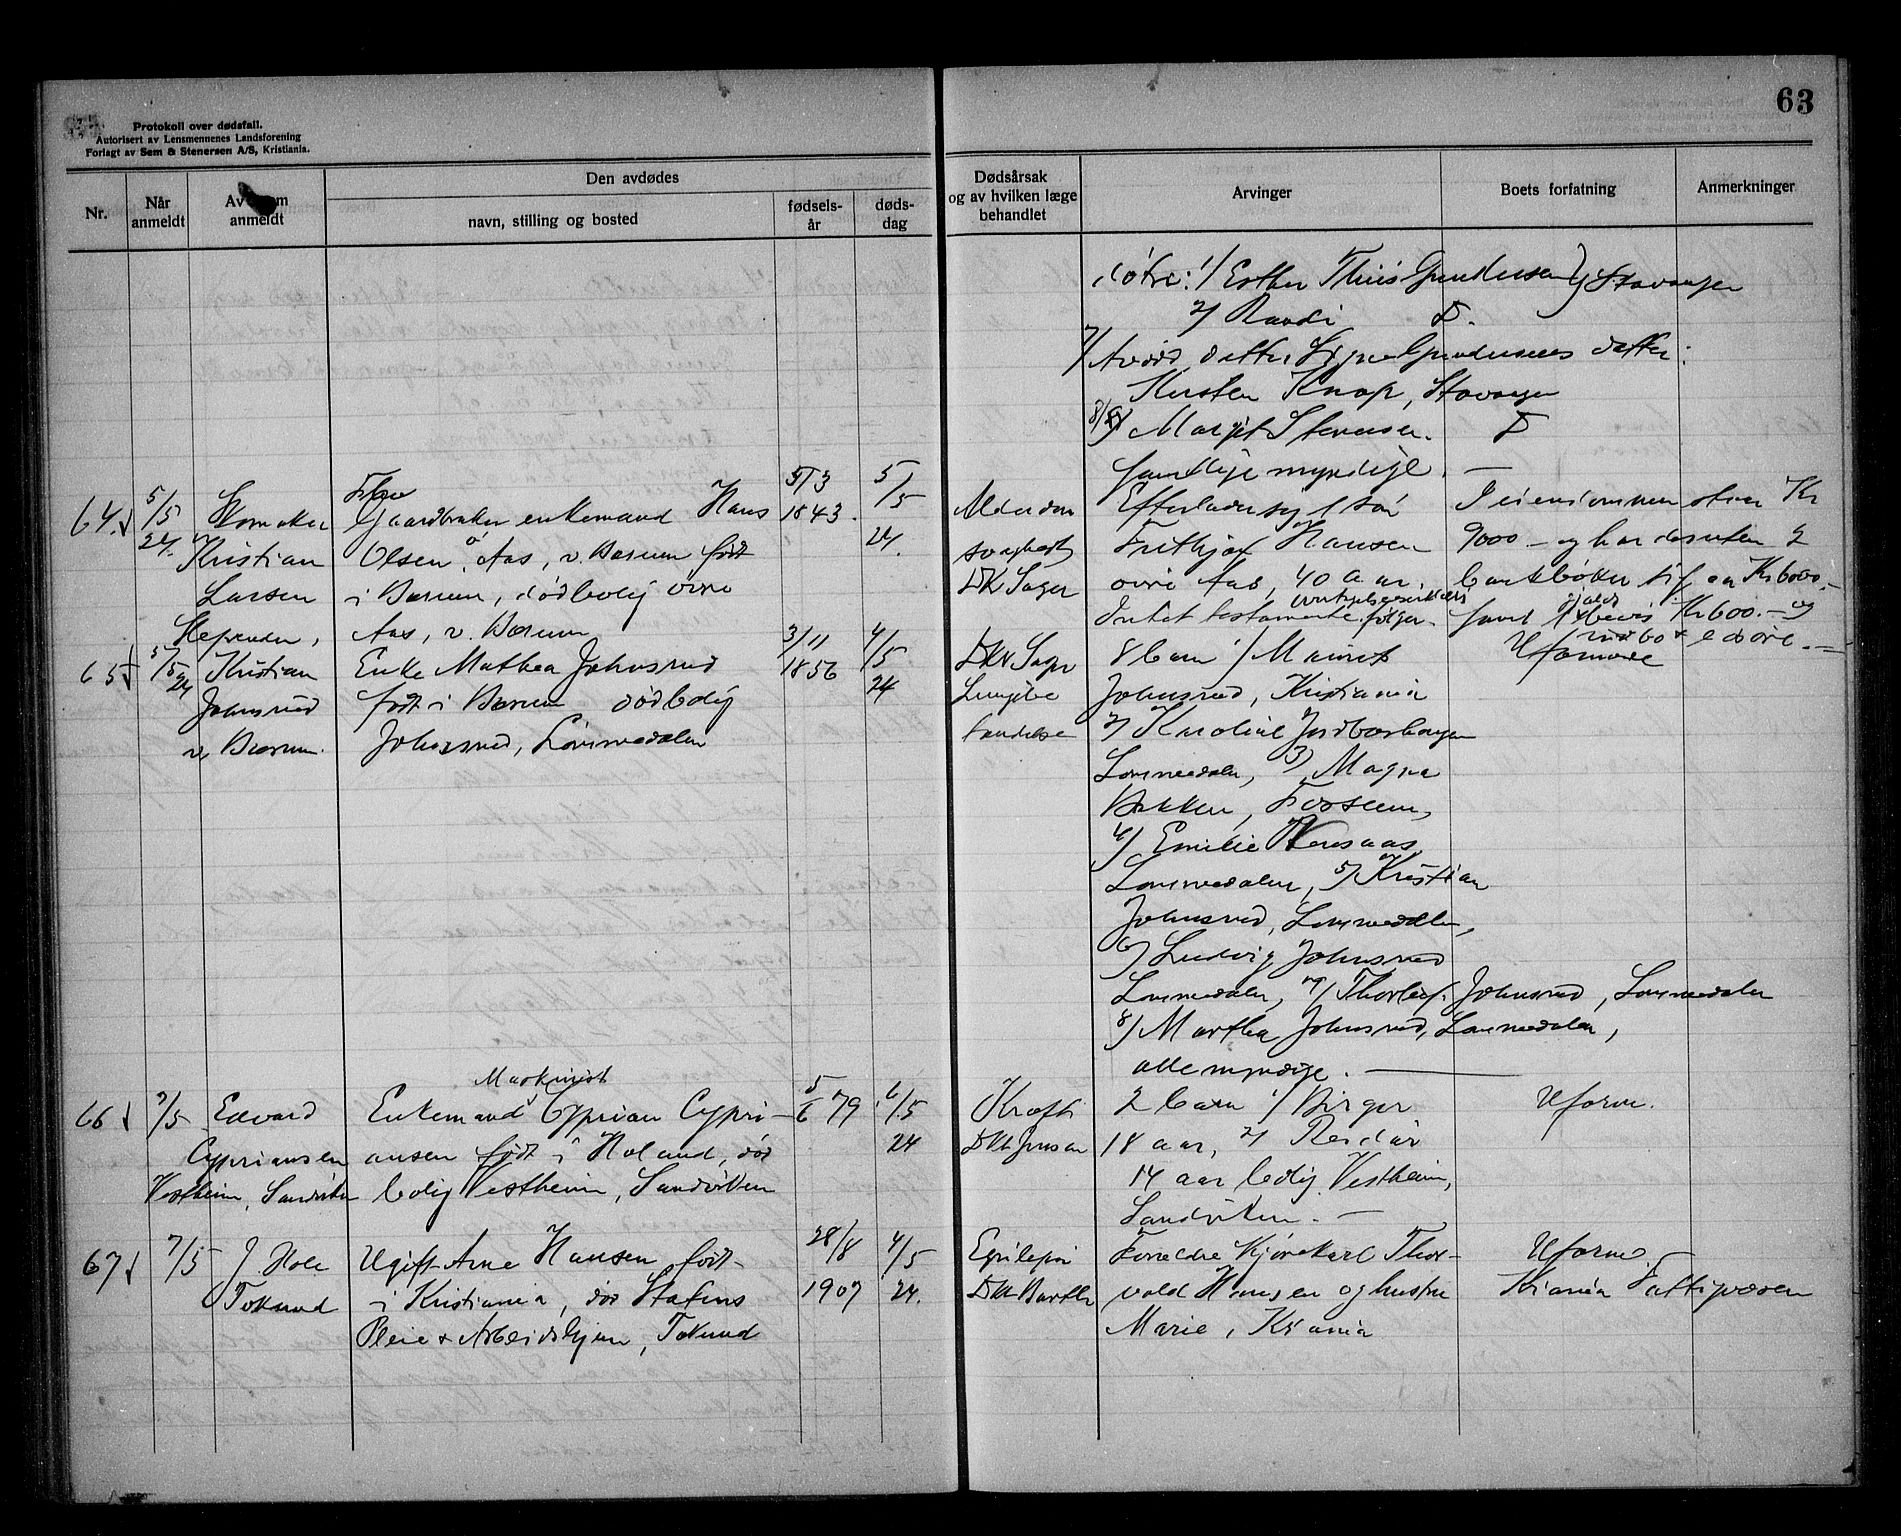 Protokoll over dødsfall.
Autorisert av Lensmennenes Landsforening
Forlagt av Sem & Stenersen A/S, Kristiania.
63
Nr.
Når
anmeldt
Av
anmeldt
Den avdødes
navn, stilling og bosted
fødsels-
år
døds-
dag
Dødsårsak
og av hvilken læge
behandlet
Arvinger
Boets forfatning
Anmerkninger
døtre: 1/ Esther Gundersen Stavanger
2/ Randi D.
7/ Avdød datter Gundersens datter:
Kirsten Knap, Stavanger
8/ Margit Stenersen. D
samtlige myndige. —
64. 5/5 24. Skomaker
Kristian
Larsen
Slependen,
Gaardbruker enkemand Hans
Olsen Aas, v. Bærum født
i Bærum, død bolig øvre
Aas, v. Bærum
5/3
1843.
5/5
24.
Alderdom
svaghet
DHr Sager
Efterlader sig 1 søn
Fritkjof Hansen
øvre Aas, 40 aar.
Intet testamente følger.
I eiendommen Kr
9000 — og har desuten 2
bankbøker Kr 6000.—
samt bevis Kr 600.— og
indbo + løsøre.—
65 5/5 24 Kristian
Johnsrud
v. Bærum.
Enke Mathea Johnsrud
født i Bærum død bolig
Johnsrud, Lommedalen
3/11
1856
4/5
24
DHr Sager
Lungebe
tændelse
8 barn 1/
Johnsrud, Kristiania
2/ Karoline
Lommedalen, 3/ Magna
Bakken, Fossum,
4/ Emilie
Lommedalen, 5/ Kristian
Johnsrud, Lommedalen,
6/ Ludvig Johnsrud
Lommedalen, 7/ Thorleif Johnsrud, Lommedalen
8/ Martha Johnsrud, Lommedalen,
alle myndige. —
Uformue
66 7/5 Edvard
Cypriansen
Vestheim, Sandviken
Maskinist
Enkemand Cyprian Cypri-
ansen født i Høland, død
bolig Vestheim, Sandviken
5/6 79
6/5
24
Kræft
DHr Jensen
2 barn 1/ Birger
18 aar, 2/ Reidar
14 aar bolig Vestheim,
Sandviken. —
Uform.
67 7/5 J. Hole
Tokerud
Ugift Arne Hansen født
i Kristiania, død Statens
Pleie & Arbeidshjem, Tokerud
28/8
1907
4/5
24.
Epilepsi
Forældre Kjørekarl Thor-
vald Hansen og hustru
Marie, Krania
Uform.
Kiania Fattigvæsen